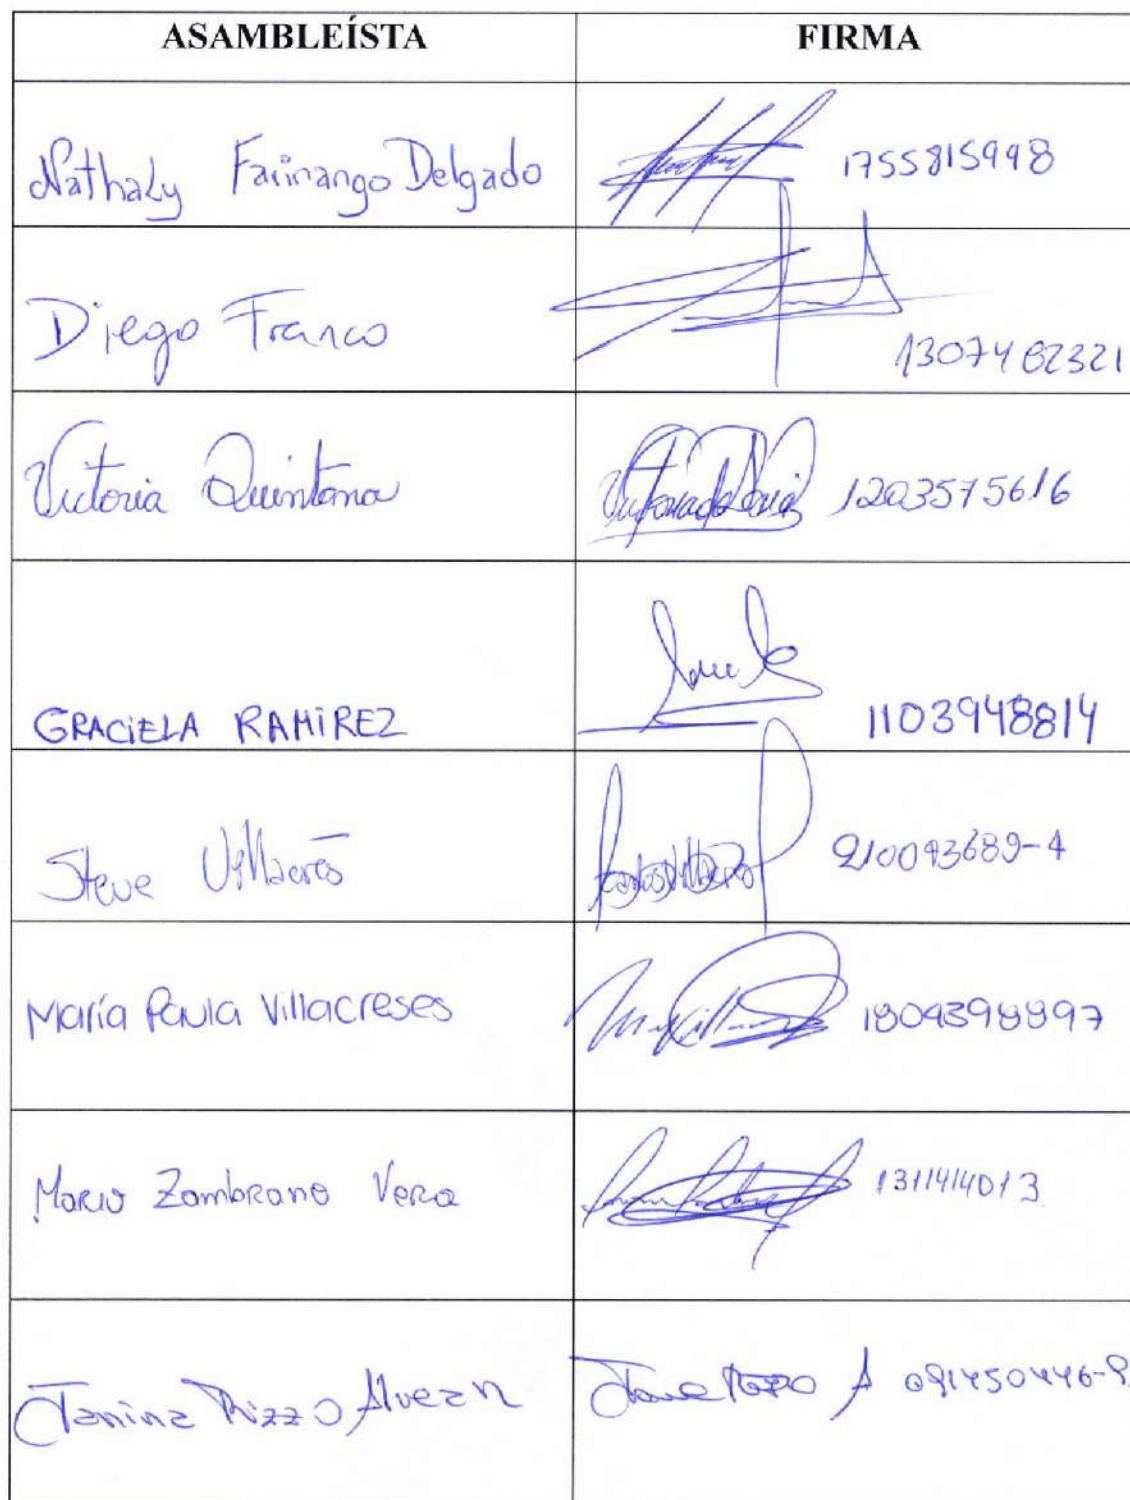 ASAMBLEÍSTA FIRMA
Nathaly Farinango Delgado 1755815998
Diego Franco 1307462321
Victoria Quintana 1203575616
GRACIELA RAMIREZ 1103948814
Steve Villacrés 210093689-4
María Paula Villacreses 1804398897
Mario Zambrano Vera 1311414013
Janina Rizzo Alvear 091450446-9